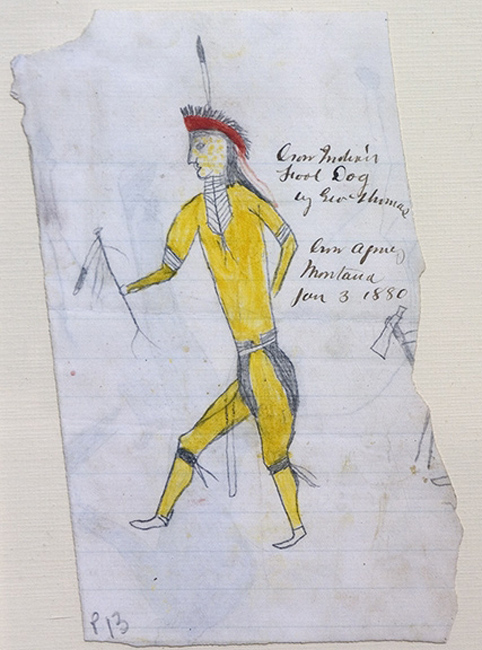 Crow Indian
Fool Dog
by Geo Thomas
Crow Agncy
Montana
Jan 3 1880
P13